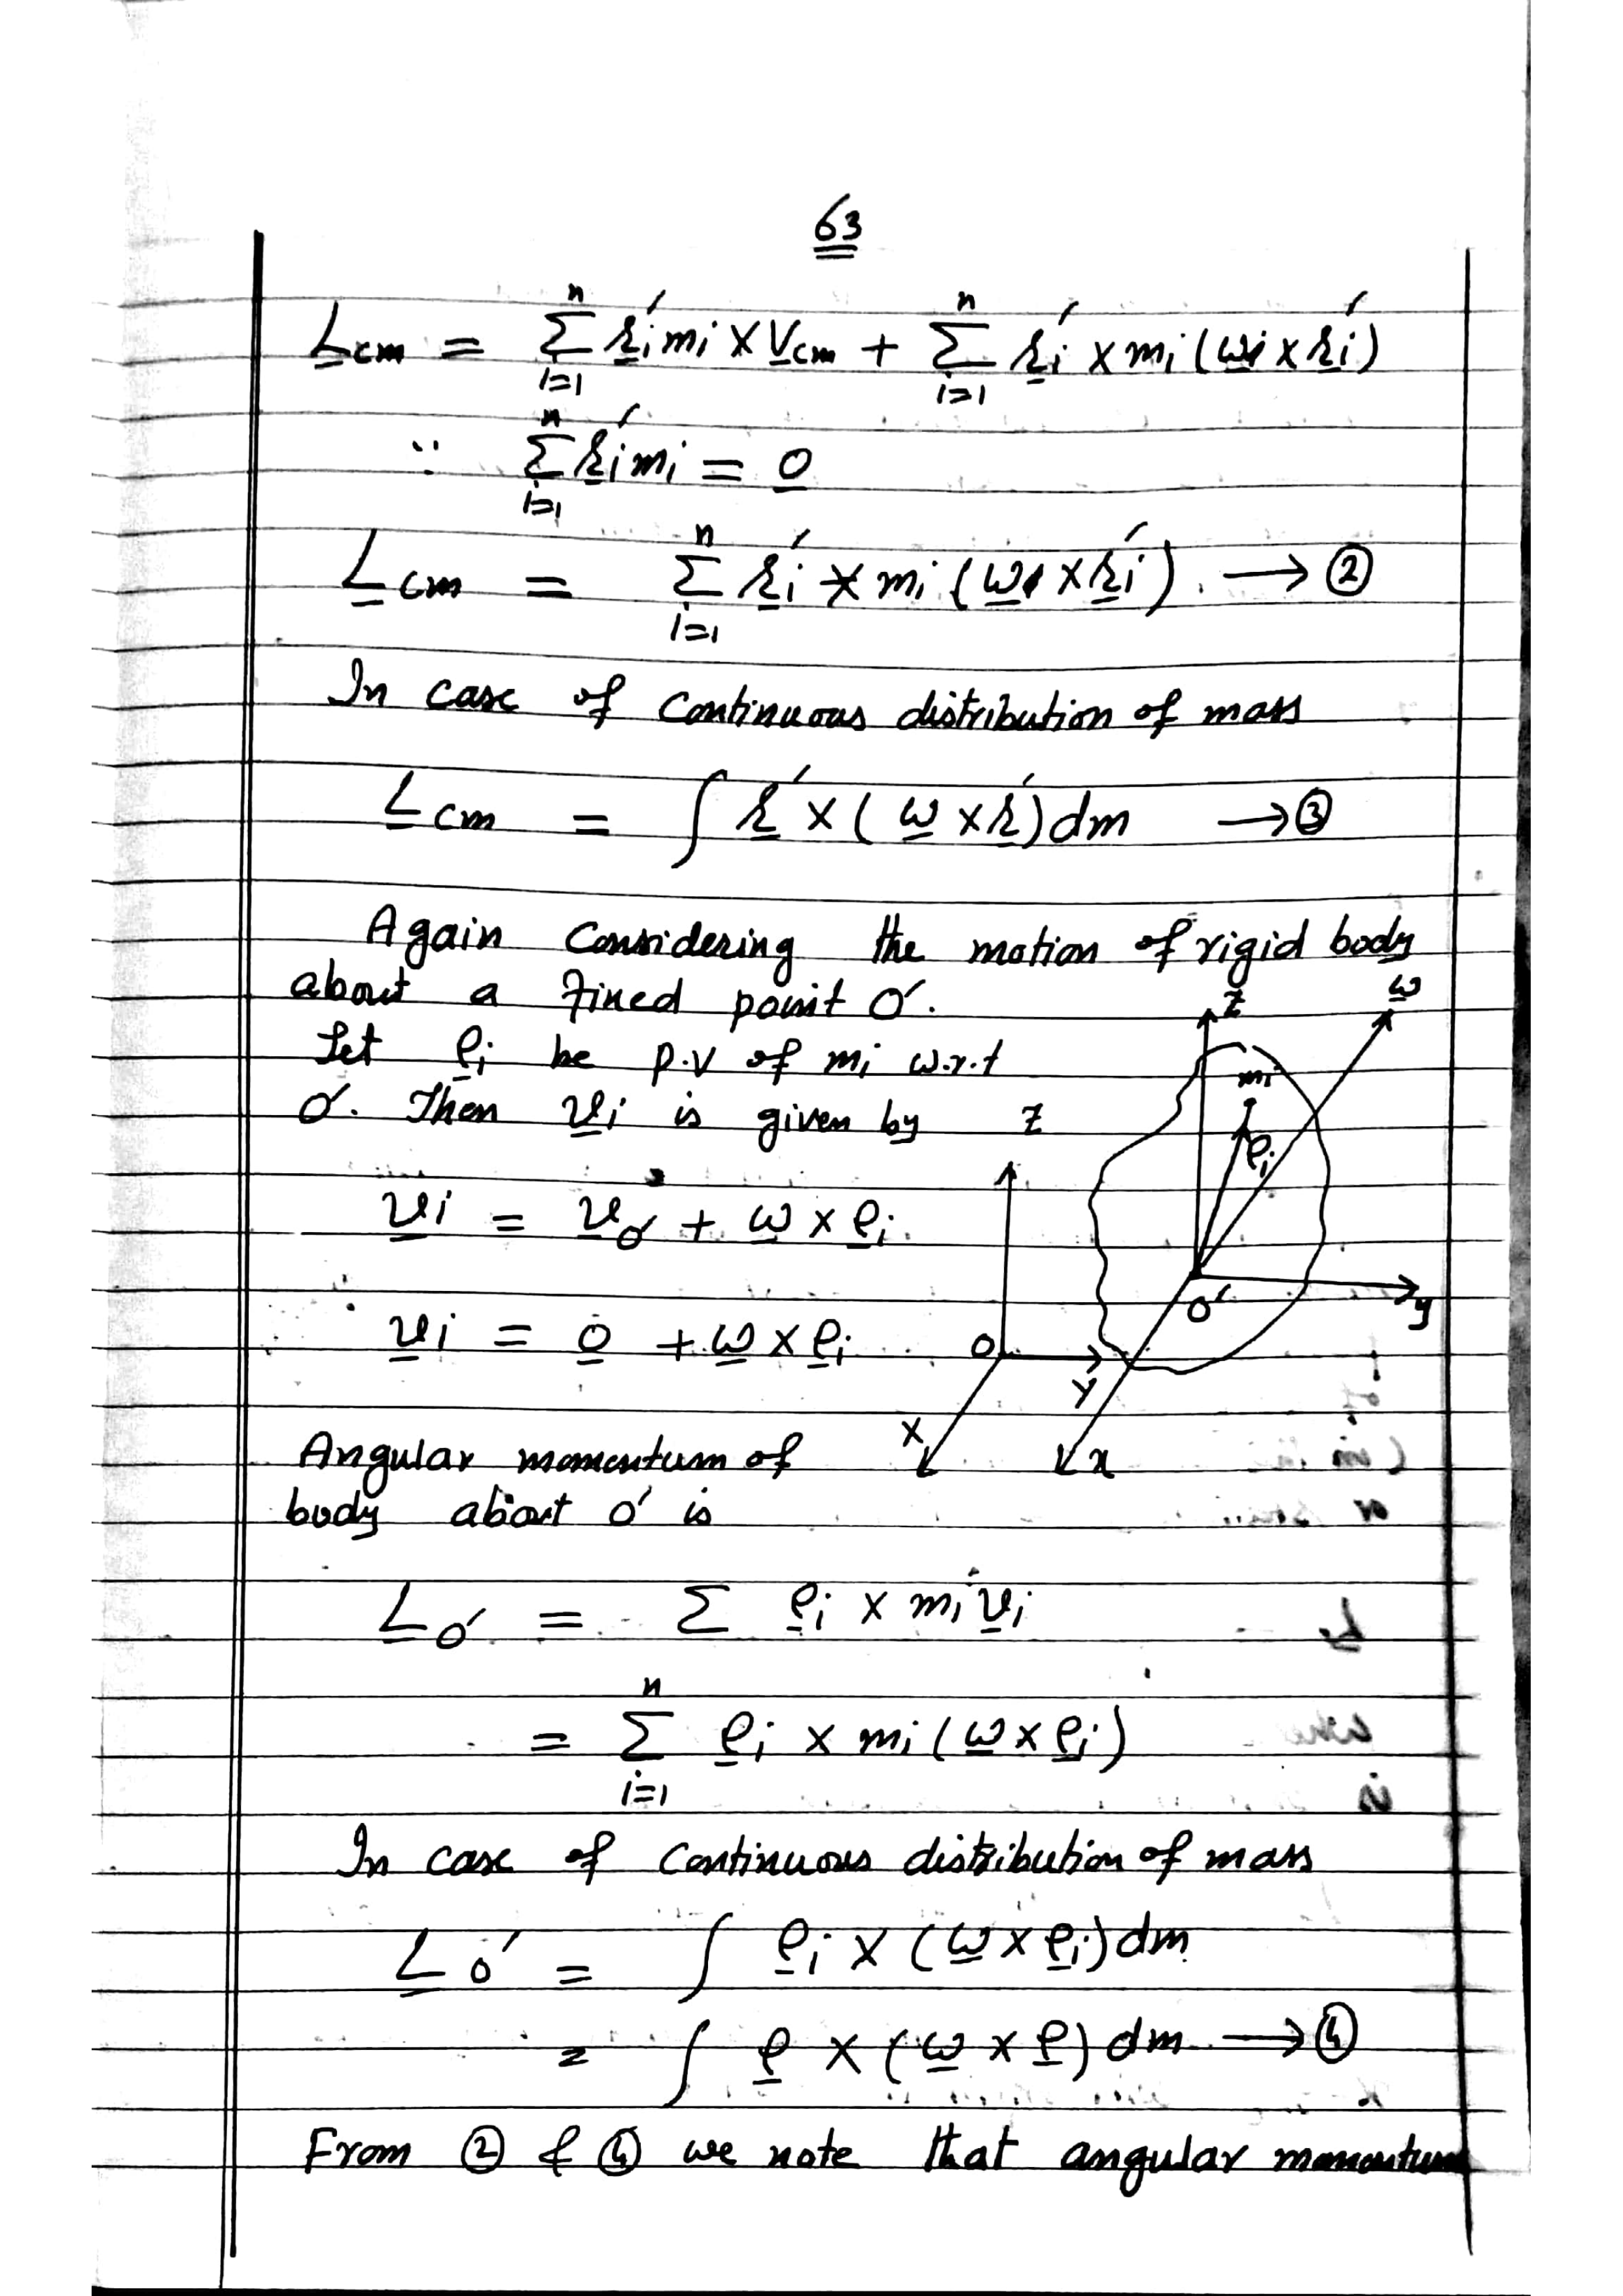 63
L̲cm = Σⁿᵢ₌₁ r̲ᵢ′mᵢ × V̲cm + Σⁿᵢ₌₁ r̲ᵢ′ × mᵢ(ω̲ × r̲ᵢ′)
∵ Σⁿᵢ₌₁ r̲ᵢ′mᵢ = 0̲
L̲cm = Σⁿᵢ₌₁ r̲ᵢ′ × mᵢ(ω̲ × r̲ᵢ′). → ②
In case of Continuous distribution of mass
L̲cm = ∫ r̲′ × (ω̲ × r̲′)dm → ③
Again Considering the motion of rigid body
about a fixed point O′.
Let ρ̲ᵢ be p.v of mᵢ w.r.t
O′. Then v̲ᵢ is given by
v̲ᵢ = v̲o′ + ω̲ × ρ̲ᵢ
v̲ᵢ = 0̲ + ω̲ × ρ̲ᵢ
z
ω̲
mᵢ
ρᵢ
O′
y
x
Z
O
Y
X
Angular momentum of
body about O′ is
L̲o′ = Σ ρ̲ᵢ × mᵢv̲ᵢ
= Σⁿᵢ₌₁ ρ̲ᵢ × mᵢ(ω̲ × ρ̲ᵢ)
In case of Continuous distribution of mass
L̲o′ = ∫ ρ̲ᵢ × (ω̲ × ρ̲ᵢ)dm
= ∫ ρ̲ × (ω̲ × ρ̲) dm → ④
From ② & ④ we note that angular momentum